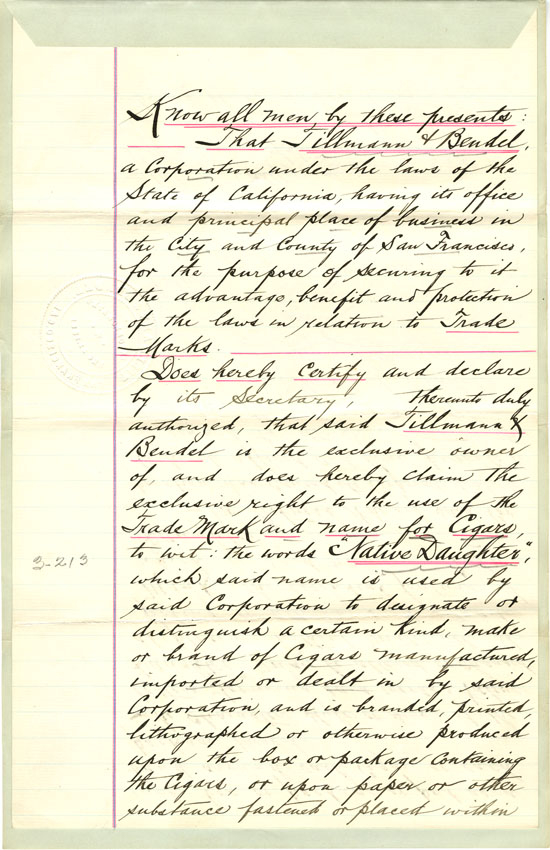 Know all men, by these presents:
That Tillmann & Bendel,
a Corporation under the laws of the
State of California, having its office
and principal place of business in
the City and County of San Francisco,
for the purpose of securing to it
the advantage, benefit and protection
of the laws in relation to Trade
Marks.
Does hereby certify and declare
by its Secretary, thereunto duly
authorized, that said Tillmann &
Bendel is the exclusive owner
of, and does hereby claim the
exclusive right to the use of the
Trade Mark and name for Cigars
3-213
to wit: the words "Native Daughter",
which said name is used by
said Corporation to designate or
distinguish a certain kind, make
or brand of Cigars manufactured,
imported or dealt in by said
Corporation, and is branded, printed,
lithographed or otherwise produced
upon the box or package containing
the Cigars, or upon paper or other
substance fastened or placed within